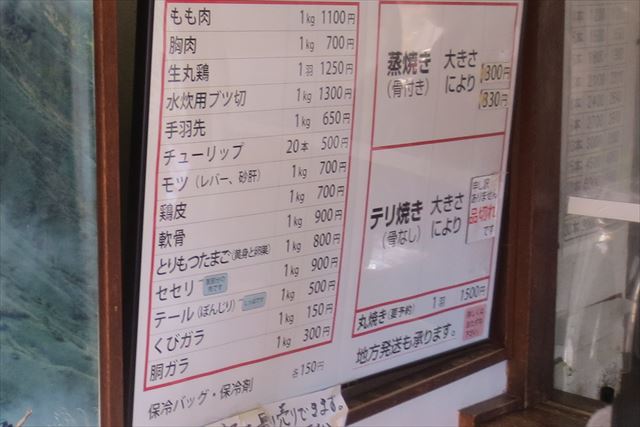 もも肉 1kg 1100円
胸肉 1kg 700円
生丸鶏 1羽 1250円
水炊用ブツ切 1kg 1300円
手羽先 1kg 650円
チューリップ 20本 500円
モツ(レバー、砂肝) 1kg 700円
鶏皮 1kg 700円
軟骨 1kg 900円
とりもつたまご(黄身と卵巣) 1kg 800円
セセリ 1kg 900円
テール(ぼんじり) 1kg 500円
くびガラ 1kg 150円
胴ガラ 1kg 300円
保冷バッグ・保冷剤 各150円
蒸焼き 大きさ
(骨付き) により
1300円
1830円
テリ焼き 大きさ
(骨なし) により
申し訳
ありません
品切れ
です
丸焼き(要予約) 1羽 1500円
地方発送も承ります。
売りできます。